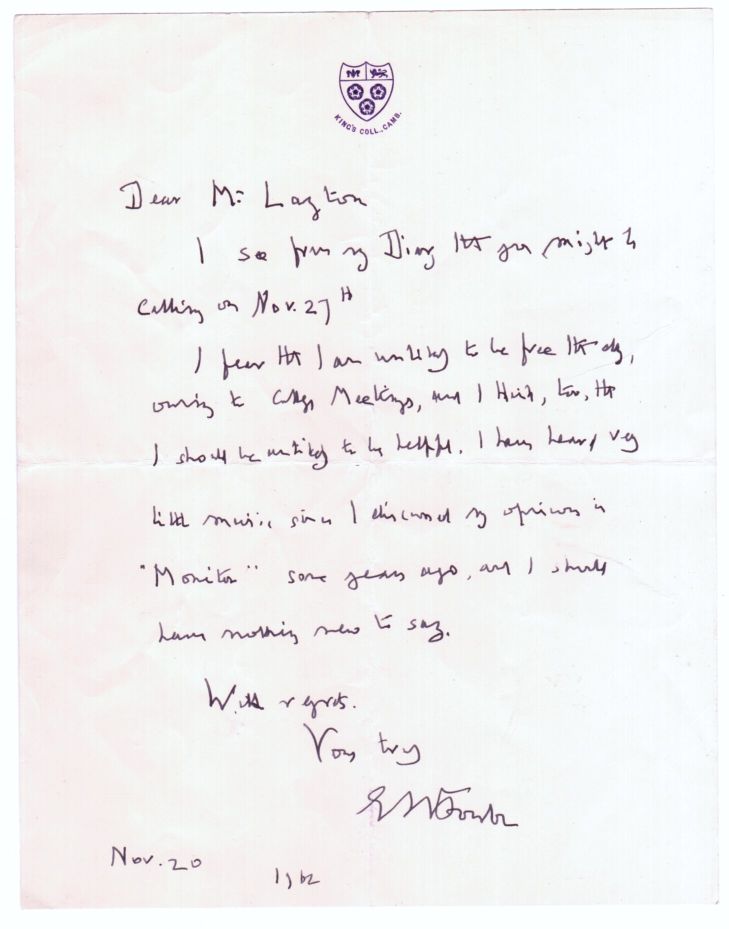 KING'S COLL., CAMB.
Dear Mr Layton
I see from my Diary that you might be
calling on Nov. 27th
I fear that I am unlikely to be free that day,
owing to College Meetings, and I think, too, that
I should be unlikely to be helpful. I have heard very
little music since I discussed my opinions in
"Monitor" some years ago, and I should
have nothing new to say.
With regrets.
Yours truly
EMForster
Nov. 20 1962